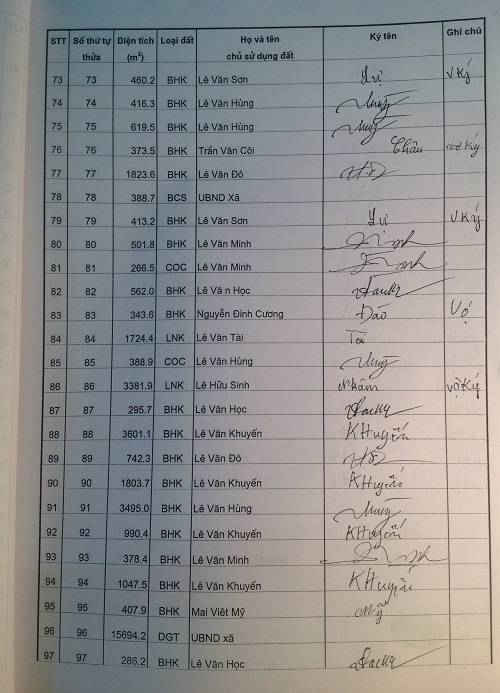 STT Số thứ tự thửa Diện tích (m²) Loại đất Họ và tên chủ sử dụng đất Ký tên Ghi chú
73 73 460.2 BHK Lê Văn Sơn Lự V Ký
74 74 416.3 BHK Lê Văn Hùng Hùng
75 75 619.5 BHK Lê Văn Hùng Hùng
76 76 373.5 BHK Trần Văn Côi Châu vợ Ký
77 77 1823.6 BHK Lê Văn Đô
78 78 388.7 BCS UBND Xã
79 79 413.2 BHK Lê Văn Sơn Lự V Ký
80 80 501.8 BHK Lê Văn Minh Minh
81 81 266.5 COC Lê Văn Minh Minh
82 82 562.0 BHK Lê Vă n Học
83 83 343.6 BHK Nguyễn Đình Cương Đào Vợ
84 84 1724.4 LNK Lê Văn Tài Tài
85 85 388.9 COC Lê Văn Hùng Hùng
86 86 3381.9 LNK Lê Hữu Sinh Nhâm vợ Ký
87 87 295.7 BHK Lê Văn Học
88 88 3601.1 BHK Lê Văn Khuyến KHuyến
89 89 742.3 BHK Lê Văn Đô
90 90 1803.7 BHK Lê Văn Khuyến KHuyến
91 91 3495.0 BHK Lê Văn Hùng Hùng
92 92 990.4 BHK Lê Văn Khuyến KHuyến
93 93 378.4 BHK Lê Văn Minh Minh
94 94 1047.5 BHK Lê Văn Khuyến KHuyến
95 95 407.9 BHK Mai Viêt Mỹ Mỹ
96 96 15694.2 DGT UBND xã
97 97 286.2 BHK Lê Văn Học